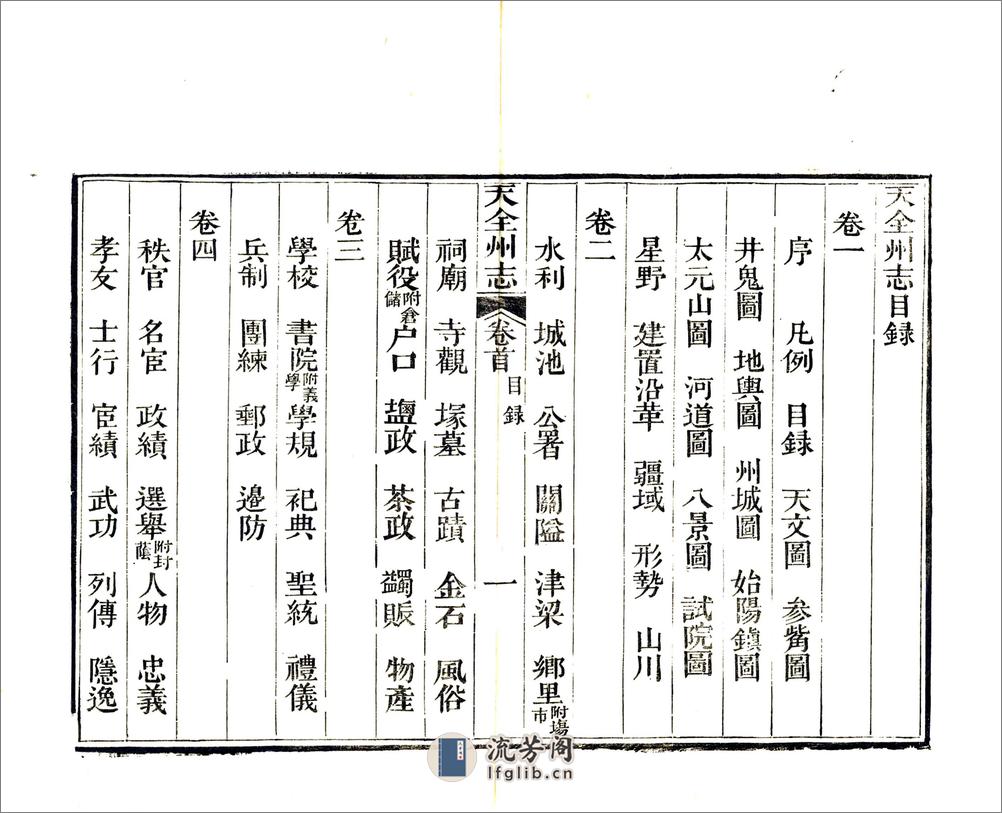 天全州志目録
卷一
序 凡例 目録 天文圖 参觜圖
井鬼圖 地輿圖 州城圖 始陽鎭圖
太元山圖 河道圖 八景圖 試院圖
星野 建置沿革 疆域 形勢 山川
卷二
水利 城池 公署 關隘 津梁 鄉里附塲市
天全州志 卷首 目録 一
祠廟 寺觀 塚墓 古蹟 金石 風俗
賦役附倉儲 户口 鹽政 茶政 蠲賑 物產
卷三
學校 書院附義學 學規 祀典 聖統 禮儀
兵制 團練 郵政 邊防
卷四
秩官 名宦 政績 選舉附封蔭 人物 忠義
孝友 士行 宦績 武功 列傳 隱逸
流芳阁
lfglib.cn